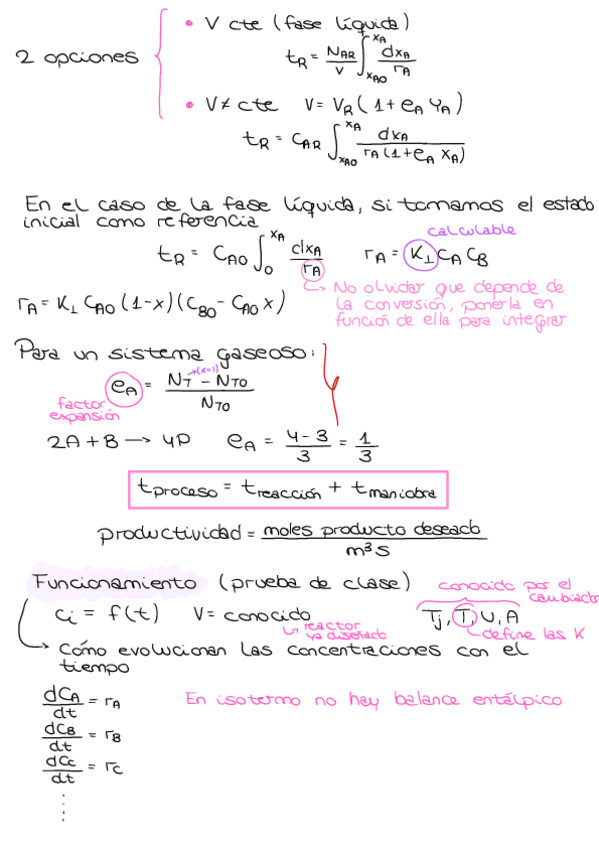 2 opciones
• V cte (fase líquida)
t_R = N_AR/V ∫_{x_A0}^{x_A} dx_A/r_A
• V≠cte V = V_R (1 + e_A y_A)
t_R = C_AR ∫_{x_A0}^{x_A} dx_A/(r_A (1+e_A x_A))
En el caso de la fase líquida, si tomamos el estado
inicial como referencia
calculable
t_R = C_A0 ∫_0^{x_A} dx_A/r_A r_A = K_1 C_A C_B
No olvidar que depende de
la conversión, ponerla en
función de ella para integrar
r_A = K_1 C_A0 (1-x)(C_B0 - C_A0 x)
Para un sistema gaseoso:
→(x=1)
e_A = (N_T - N_T0)/N_T0
factor
expansión
2A + B → 4P e_A = (4-3)/3 = 1/3
t proceso = t reacción + t maniobra
productividad = moles producto deseado/m³s
Funcionamiento (prueba de clase)
conocido por el
cambiador
c_i = f(t) V = conocido T_j, T, U, A
reactor
ya diseñado
define las K
Cómo evolucionan las concentraciones con el
tiempo
dC_A/dt = r_A En isotermo no hay balance entálpico
dC_B/dt = r_B
dC_C/dt = r_C
⋮